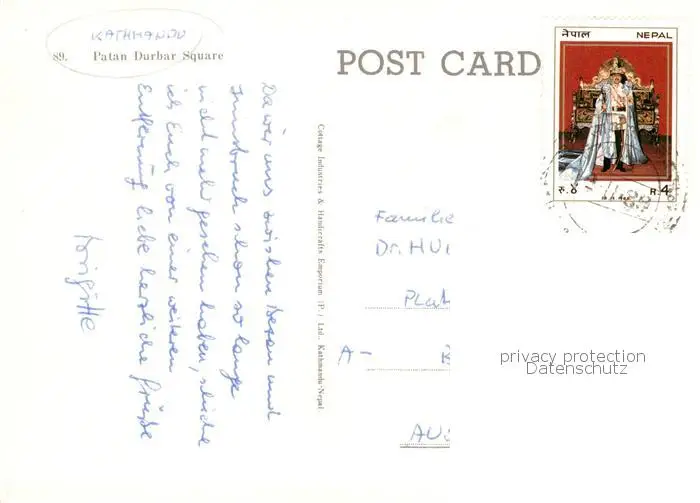 KATHMANDU
89. Patan Durbar Square
POST CARD
नेपाल NEPAL
रु. ४ R. 4
Da wir uns zwischen Bozen und
Innsbruck schon so lange
nicht mehr gesehen haben, schicke
ich Euch von einer weiteren
Entfernung liebe herzliche Grüße
Brigitte
Cottage Industries & Handicrafts Emporium (P.) Ltd., Kathmandu-Nepal.
Familie
Dr. HU
Plat
A-
AU
privacy protection
Datenschutz